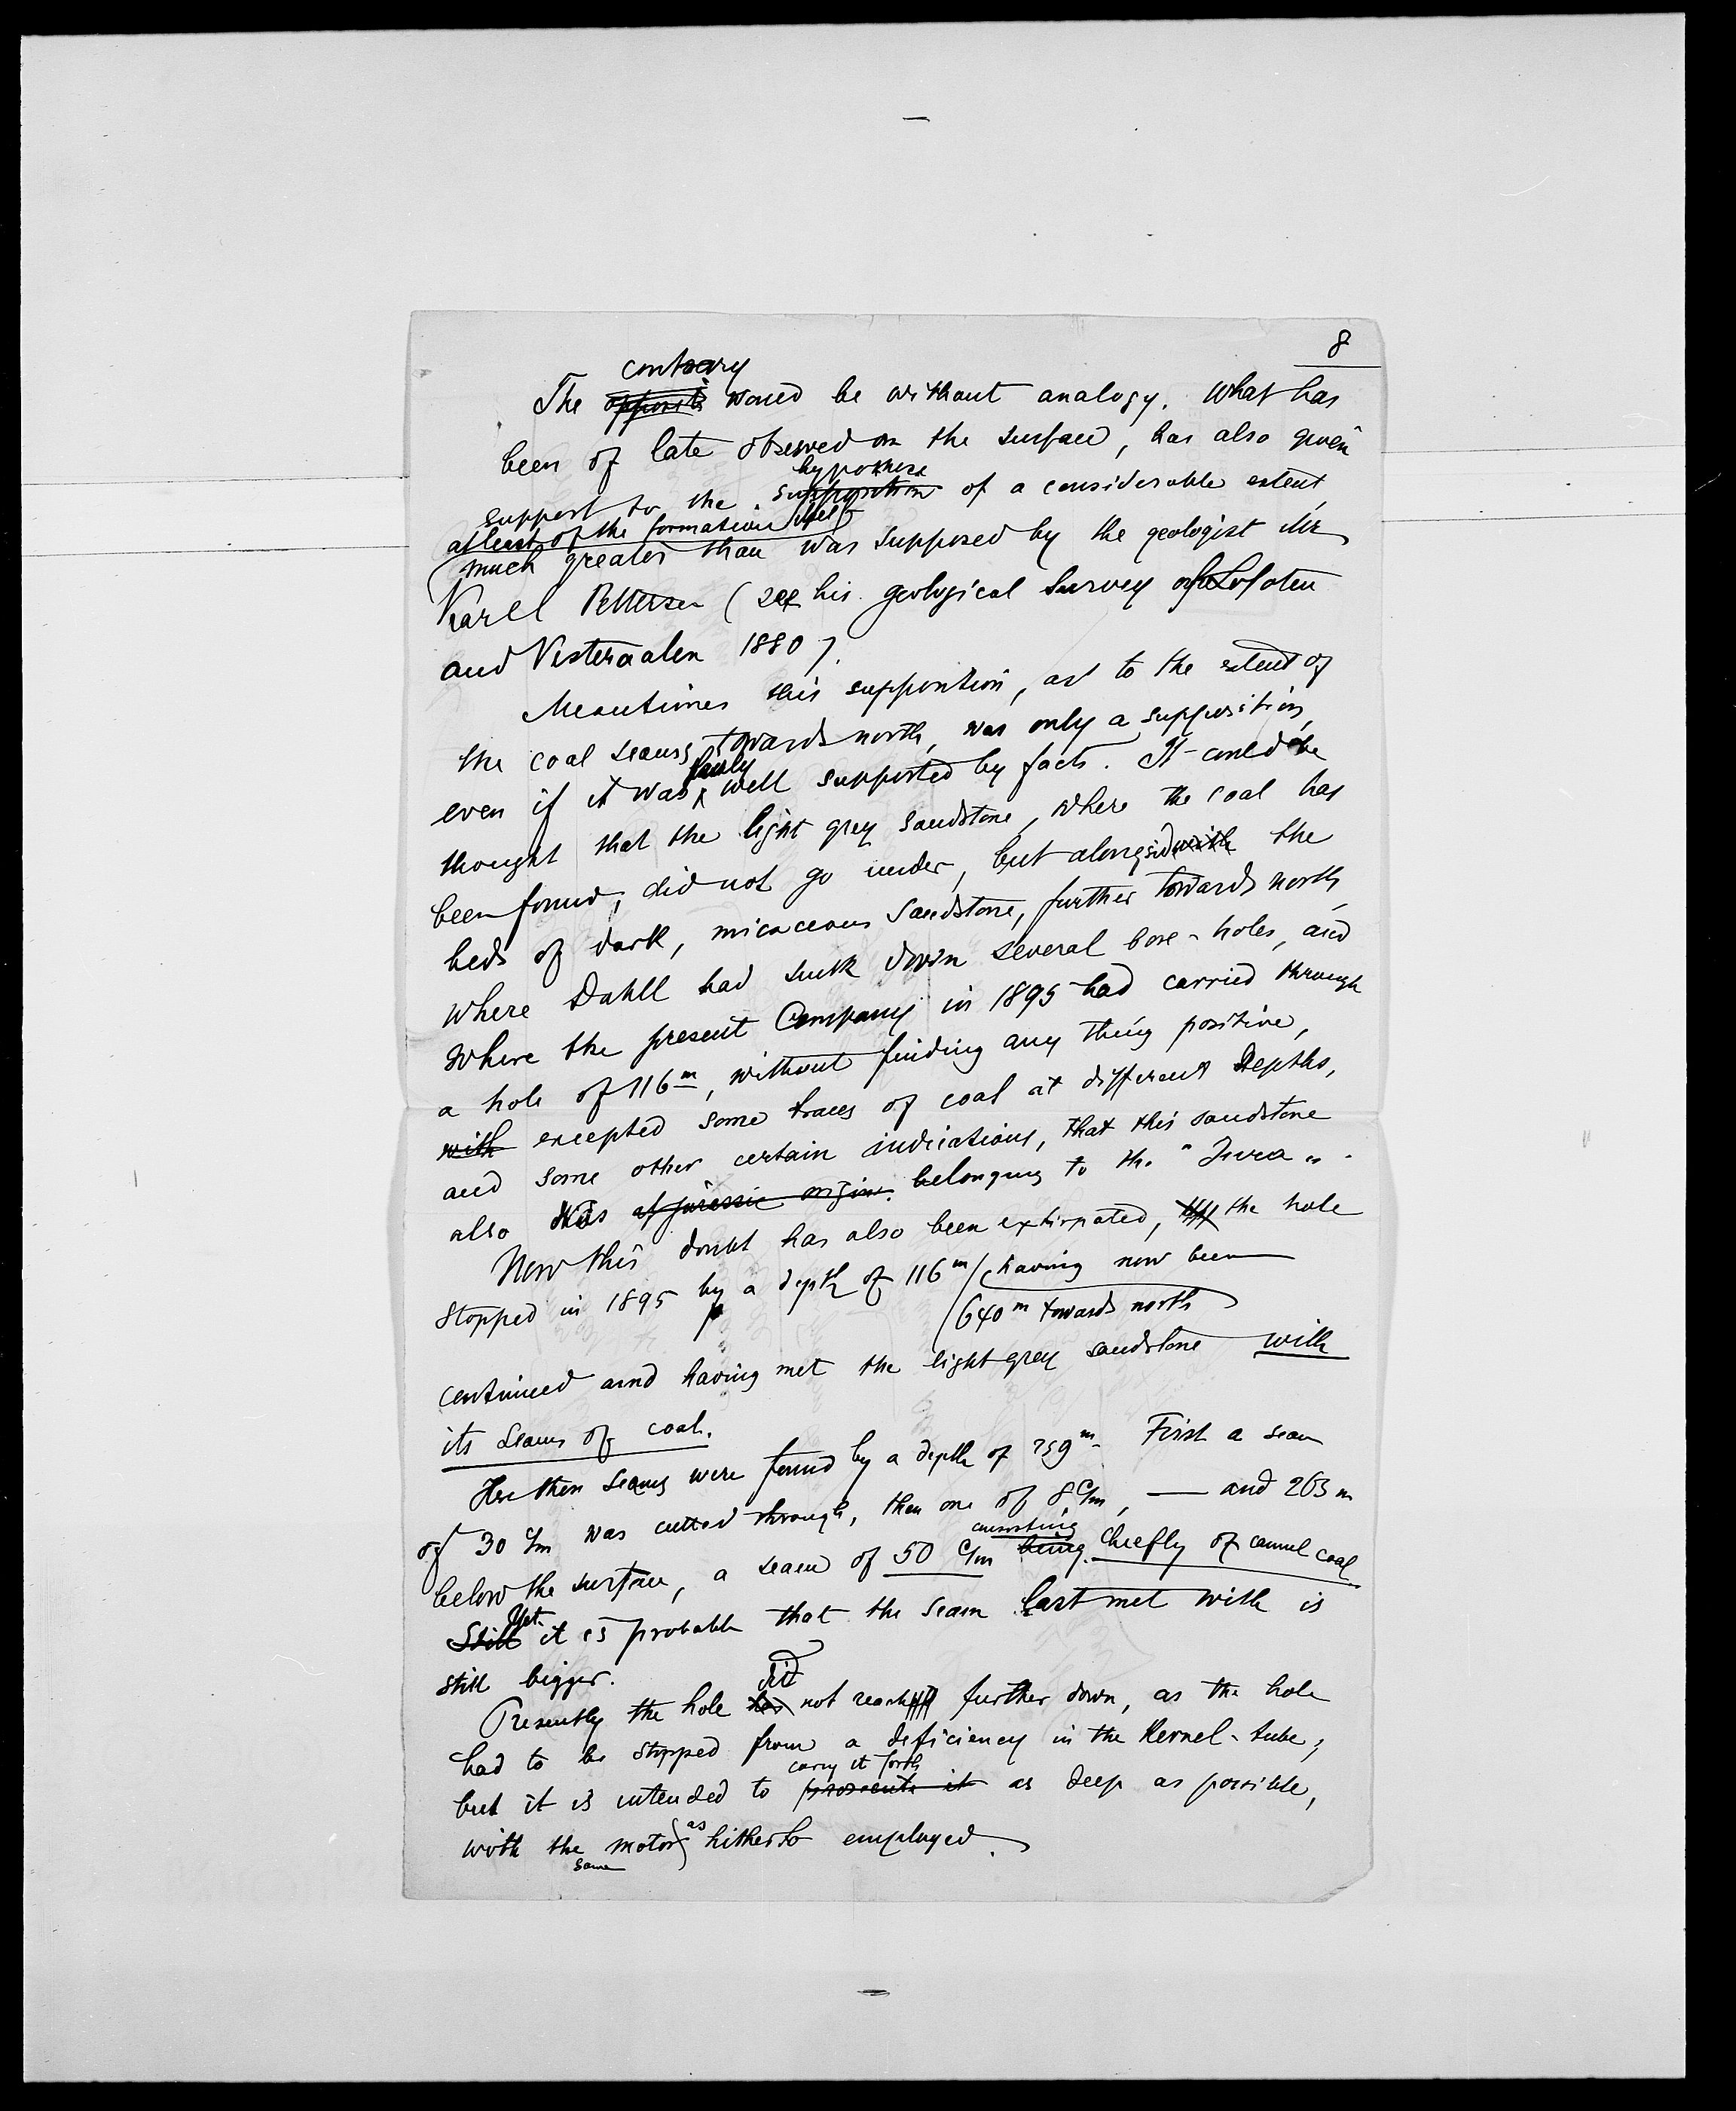 8
contrary
The opposite would be without analogy. What has
been of late observed on the surface, has also given
hypothese
support to the supposition of a considerable extent,
atleast of the formation itself
much greater than was supposed by the geologist Mr
Karl Pettersen (see his geological Survey of Lofoten
and Vesteraalen 1880).
Meantimes this supposition, as to the extent of
the coal seams towards north, was only a supposition,
fairly
even if it was well supported by facts. It could be
thought that the light grey sandstone, where the coal has
been found, did not go under, but alongside with the
beds of dark, micaceous sandstone, further towards north,
where Dahll had sunk down several bore-holes, and
where the present Company in 1895 had carried through
a hole of 116 m, without finding any thing positive,
with excepted some traces of coal at different depths,
and some other certain indications, that this sandstone
also was of jurassic origin. belonging to the "Jura".
Now this doubt has also been extirpated, the hole
stopped in 1895 by a depth of 116 m having now been
640 m towards north
continued and having met the light grey sandstone with
its seams of coal.
Here then seams were found by a depth of 259 m. First a seam
of 30 c/m was cutted through, then one of 8 c/m, — and 263 m
consisting
below the surface, a seam of 50 c/m being cheefly of cannel coal
Yet
Still it is probable that the seam last met with is
still bigger.
did
Presently the hole has not reach further down, as the hole
had to be stopped from a deficiency in the Kernel-tube;
carry it forth
but it is intended to prosecute it as deep as possible,
as
with the motor hitherto employed.
same